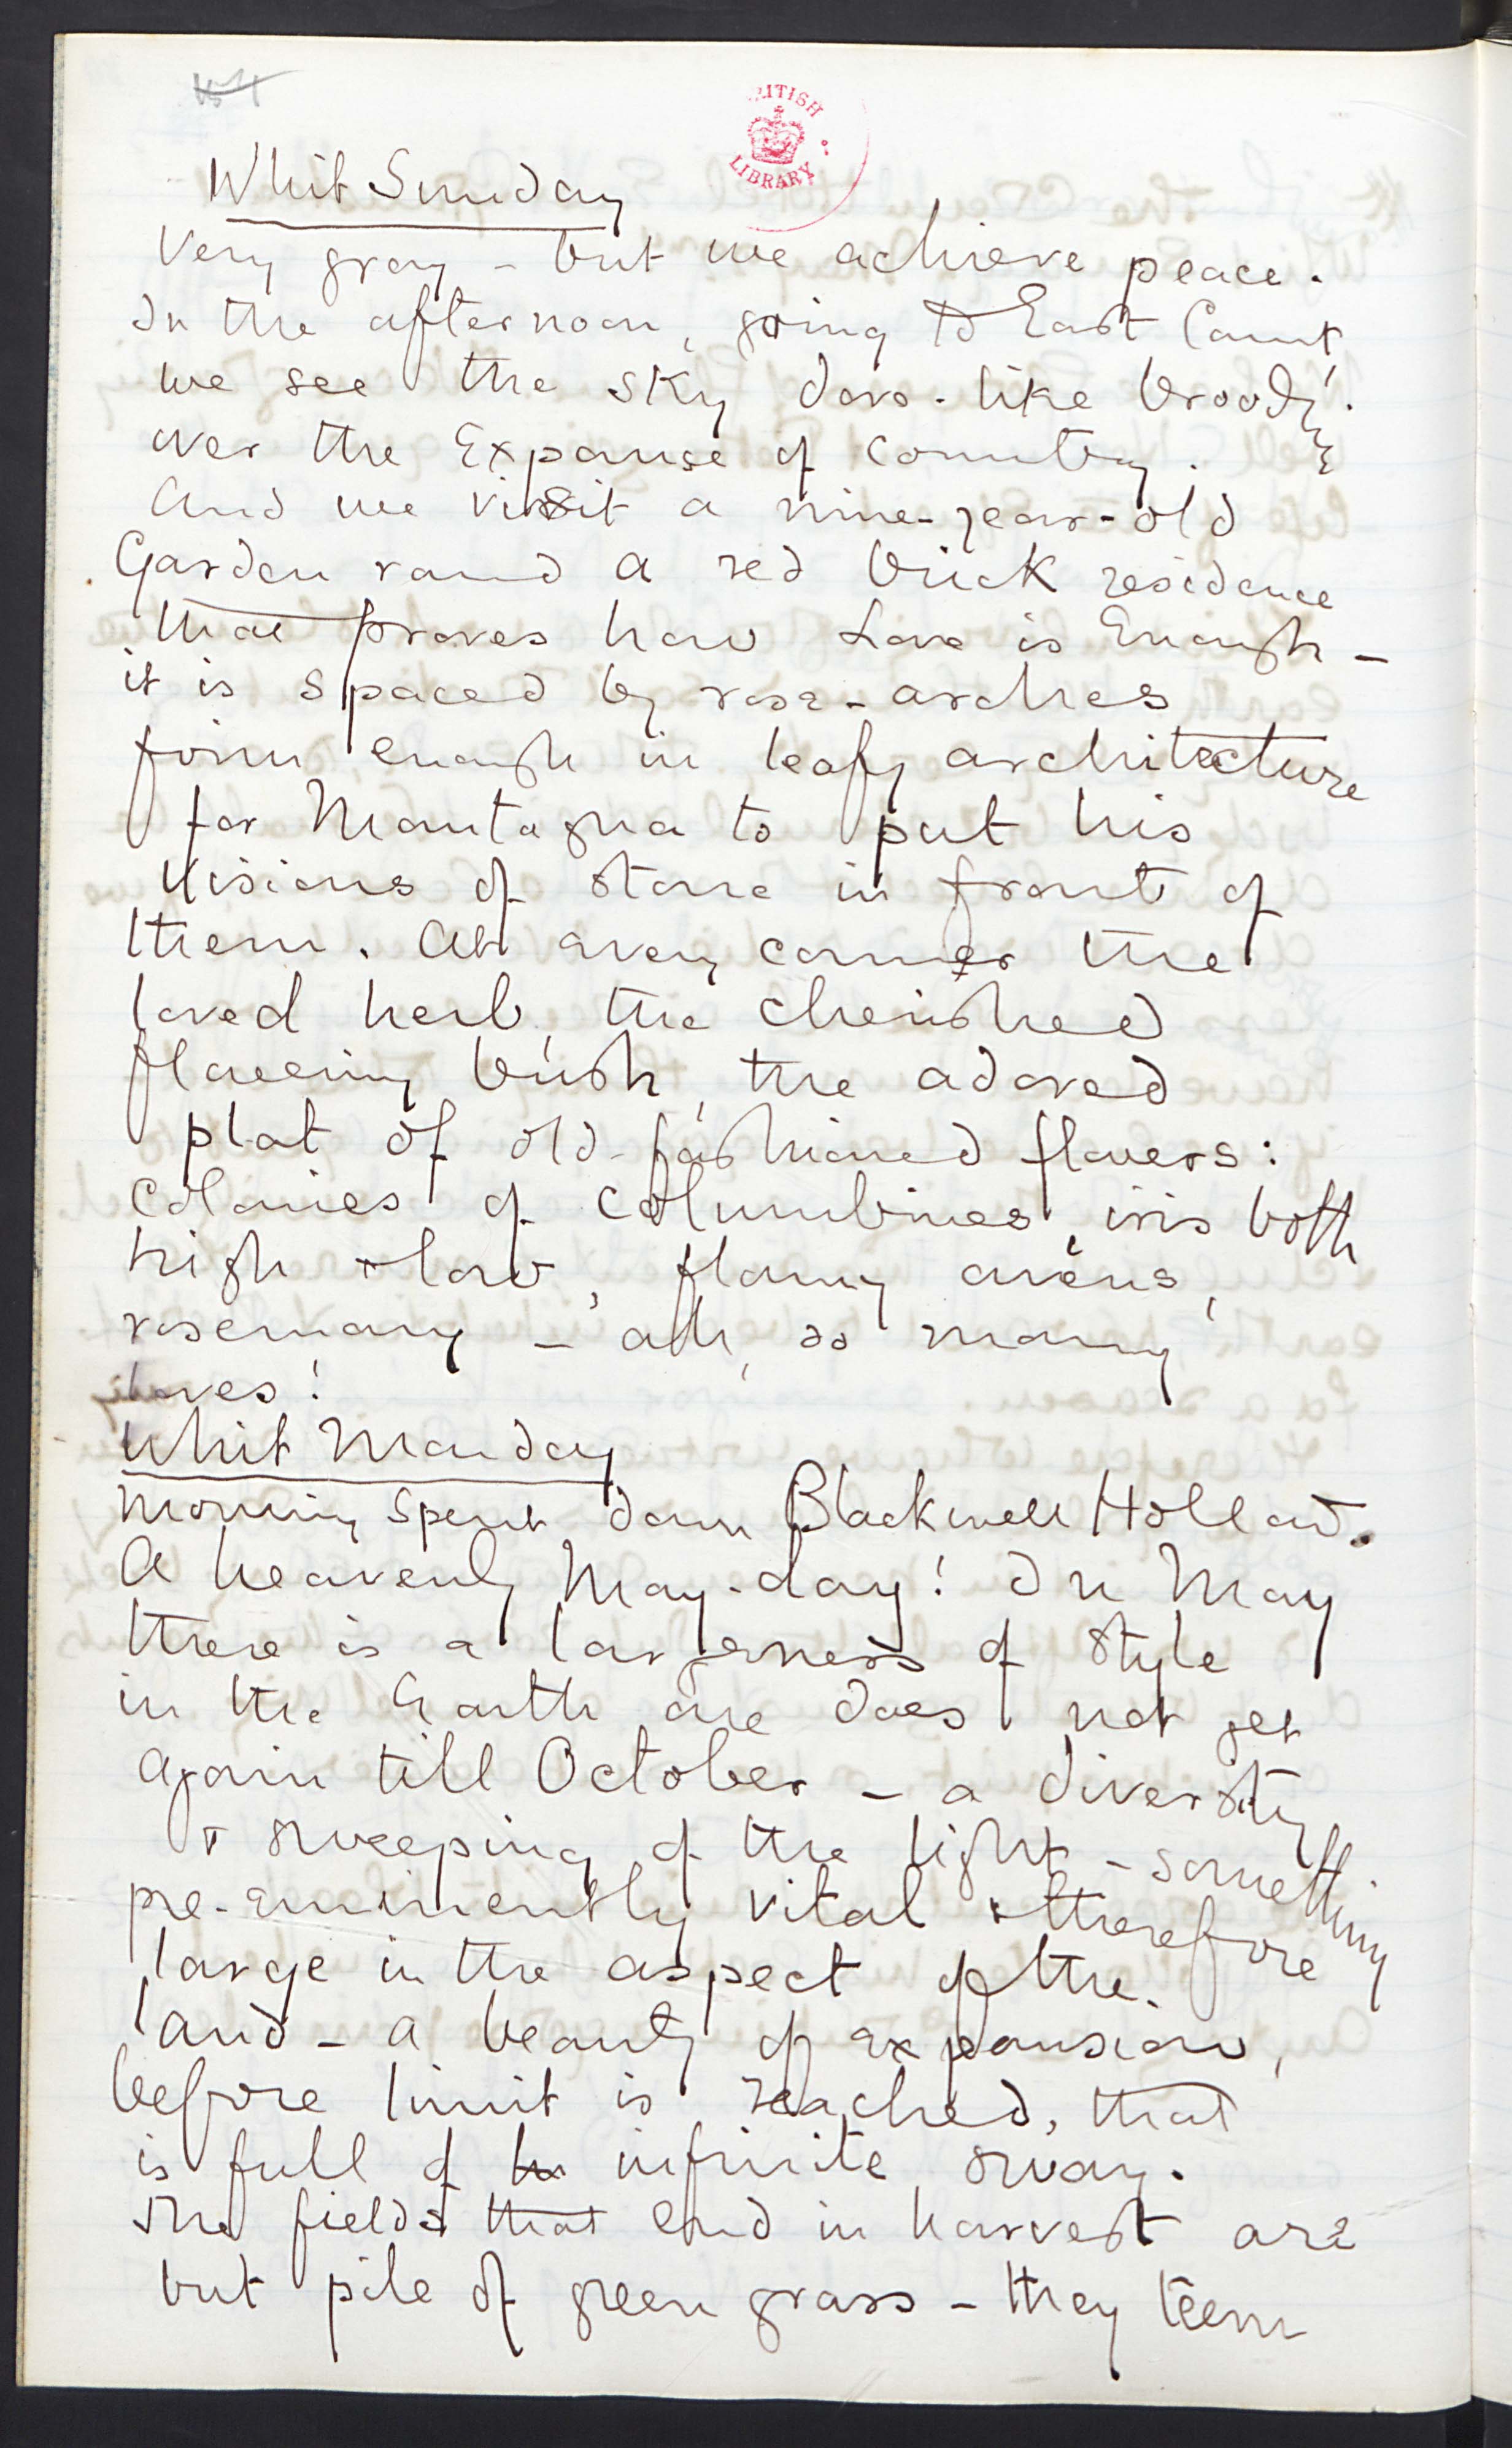 BRITISH
LIBRARY
Whit Sunday
Very gray – but we achieve peace.
In the afternoon, going to East Court,
we see the sky dove-like broody
over the Expanse of country.
And we visit a nine-year-old
Garden round a red brick residence
that proves how Love is Enough –
it is spaced by rose-arches
firm enough in leafy architecture
for Mantagna to put his
Visions of stone in front of
them. At every corner the
loved herb, the cherished
flowering bush, the adored
plot of old-fashioned flowers:
Colonies of Columbines, iris both
high & low, flamy avens,
rosemary – ah, so many
loves!
Whit Monday
Morning spent down Blackwell Hollow.
A heavenly May-day! In May
there is a largeness of style
in the Earth one does not get
again till October – a diversity
& sweeping of the light – something
pre-eminently vital & therefore
large in the aspect of the
land – a beauty of expansion,
before limit is reached, that
is full of infinite sway.
The fields that end in harvest are
but pile of green grass – they teem